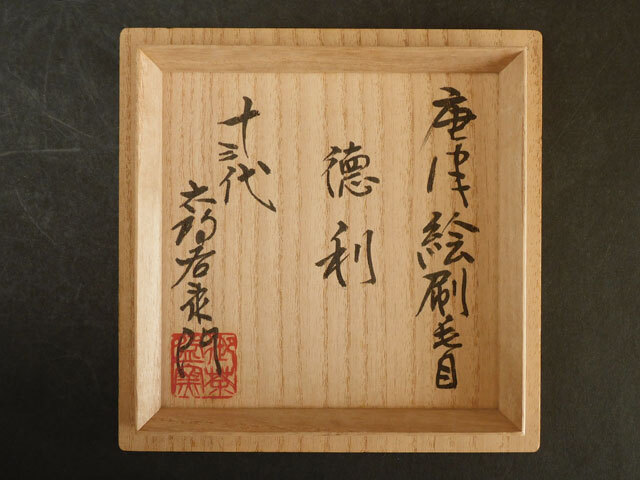 唐津絵刷毛目
徳利
十三代
太郎右衛門